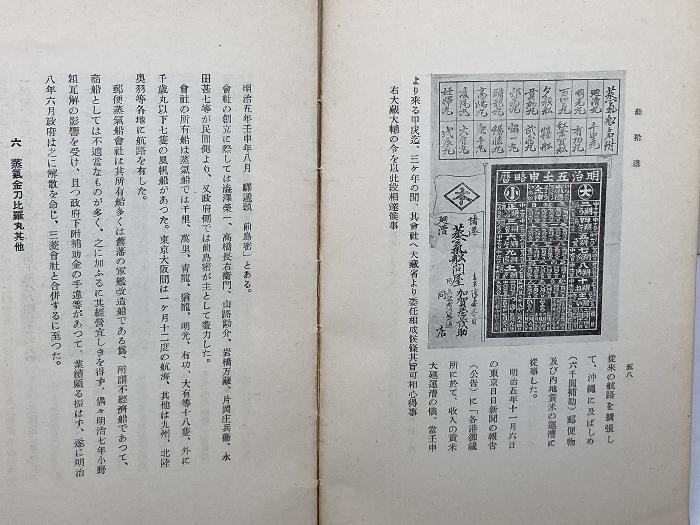 船拾遺
五八
蒸氣船名附
明治五壬申略曆
大
小
諸港
蒸氣船問屋
同店
從來の航路を擴張し
て、沖繩に及ばしめ
(六千圓補助)郵便物
及び內地貢米の運漕に
從事した。
明治五年十一月六日
の東京日日新聞の報告
(公告)に「各港御藏
所に於て、收入の貢米
大廻運漕の儀、當壬申
より來る甲戌迄、三ヶ年の間、其會社へ大藏省より委任相成候條其旨可相心得事
右大藏大輔の令を以此段相達候事
明治五年壬申年八月 驛遞頭 前島密」とある。
會社の創立に際しては澁澤榮一、高橋長右衞門、山路勘介、岩橋万藏、片岡庄兵衞、永
田甚七等が民間側より、又政府側では前島密が主として盡力した。
會社の所有船は蒸氣船では千里、萬里、靑龍、猶龍、明光、有功、大有等十八隻、外に
千歲丸以下七隻の風帆船があつた。東京大阪間は一ヶ月十二度の航海、其他は九州、北陸
奧羽等各地に航路を有した。
郵便蒸氣船會社は其所有船多くは舊藩の軍艦改造船である爲、所謂不經濟船であつて、
商船としては不適當なものが多く、之に加ふるに其經營宜しきを得ず、偶々明治七年小野
組瓦解の影響を受け、且つ政府下附補助金の手違等があつて、業績頗る振はず、遂に明治
八年六月政府は之に解散を命じ、三菱會社と合併するに至つた。
六 蒸氣金刀比羅丸其他